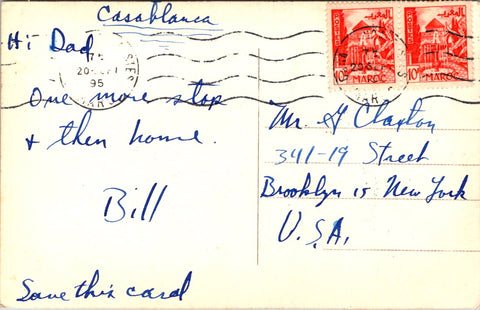 Casablanca
Hi Dad
One more stop
& then home.
Bill
Save this card
Mr. G Claxton
341-19 Street
Brooklyn 15 New York
U.S.A.
POSTES
المغرب
10F
MAROC
POSTES
المغرب
10F
MAROC
17
20
95